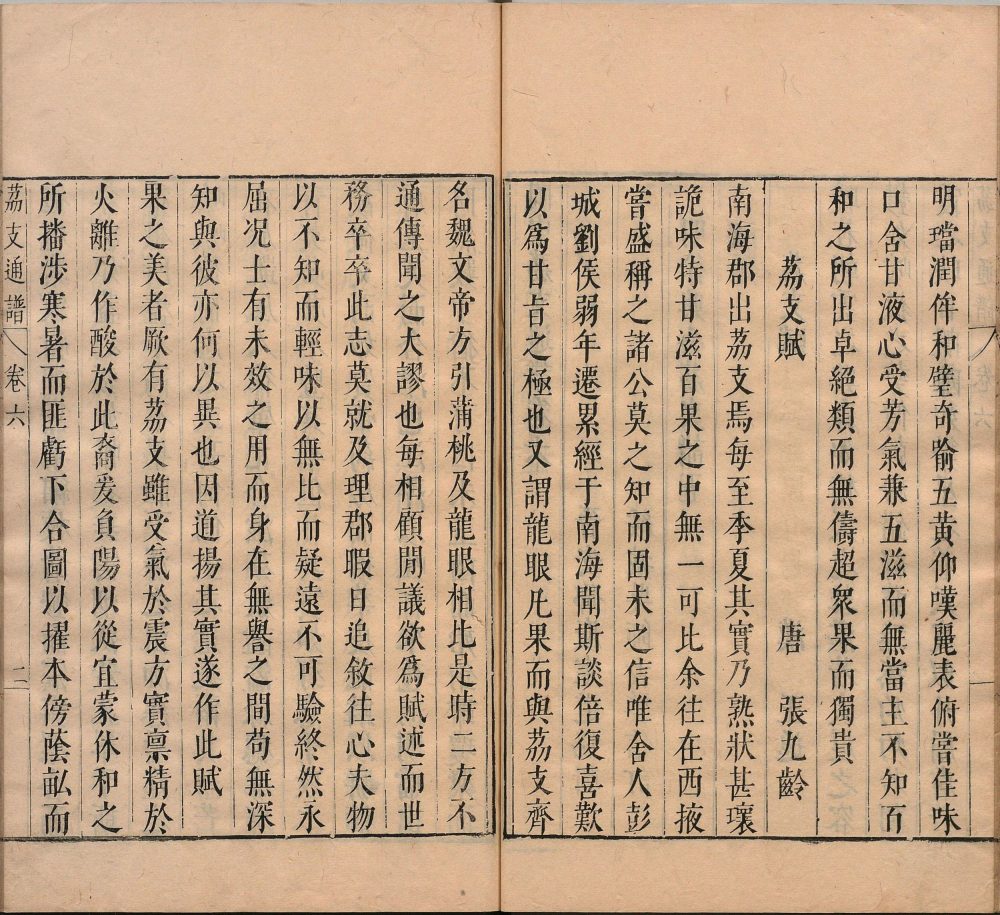 明璫潤侔和璧奇喻五黄仰嘆麗表俯嘗佳味
口含甘液心受芳氣兼五滋而無當主不知百
和之所出卓絕類而無儔超衆果而獨貴
荔支賦 唐 張九齡
南海郡出荔支焉每至季夏其實乃熟狀甚瓌
詭味特甘滋百果之中無一可比余往在西掖
嘗盛稱之諸公莫之知而固未之信唯舍人彭
城劉侯弱年遷累經于南海聞斯談倍復喜歎
以爲甘旨之極也又謂龍眼凡果而與荔支齊
名魏文帝方引蒲桃及龍眼相比是時二方不
通傳聞之大謬也每相顧閒議欲爲賦述而世
務卒卒此志莫就及理郡暇日追敘往心夫物
以不知而輕味以無比而疑遠不可驗終然永
屈况士有未效之用而身在無譽之間苟無深
知與彼亦何以異也因道揚其實遂作此賦
果之美者厥有荔支雖受氣於震方實禀精於
火離乃作酸於此裔爰負陽以從宜蒙休和之
所播涉寒暑而匪虧下合圍以擢本傍蔭畝而
荔支通譜 卷六 二